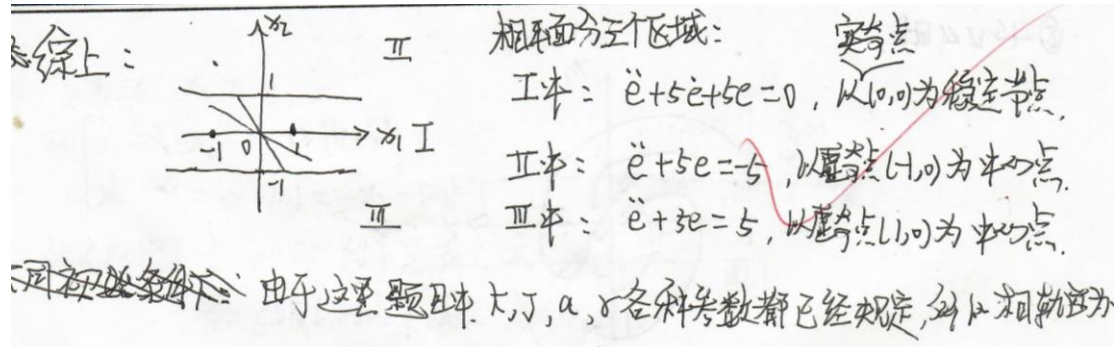 综上：
x₂
Ⅱ
1
-1 0 1 x₁ Ⅰ
-1
Ⅲ
相平面分三个区域：
实奇点
Ⅰ中：ë+5ė+5e=0，以(0,0)为稳定节点.
Ⅱ中：ë+5e=-5，以虚奇点(-1,0)为中心点.
Ⅲ中：ë+5e=5，以虚奇点(1,0)为中心点.
不同初始条件下：由于这里题目中 k,J,a,r各种参数都已经规定,所以相轨迹为